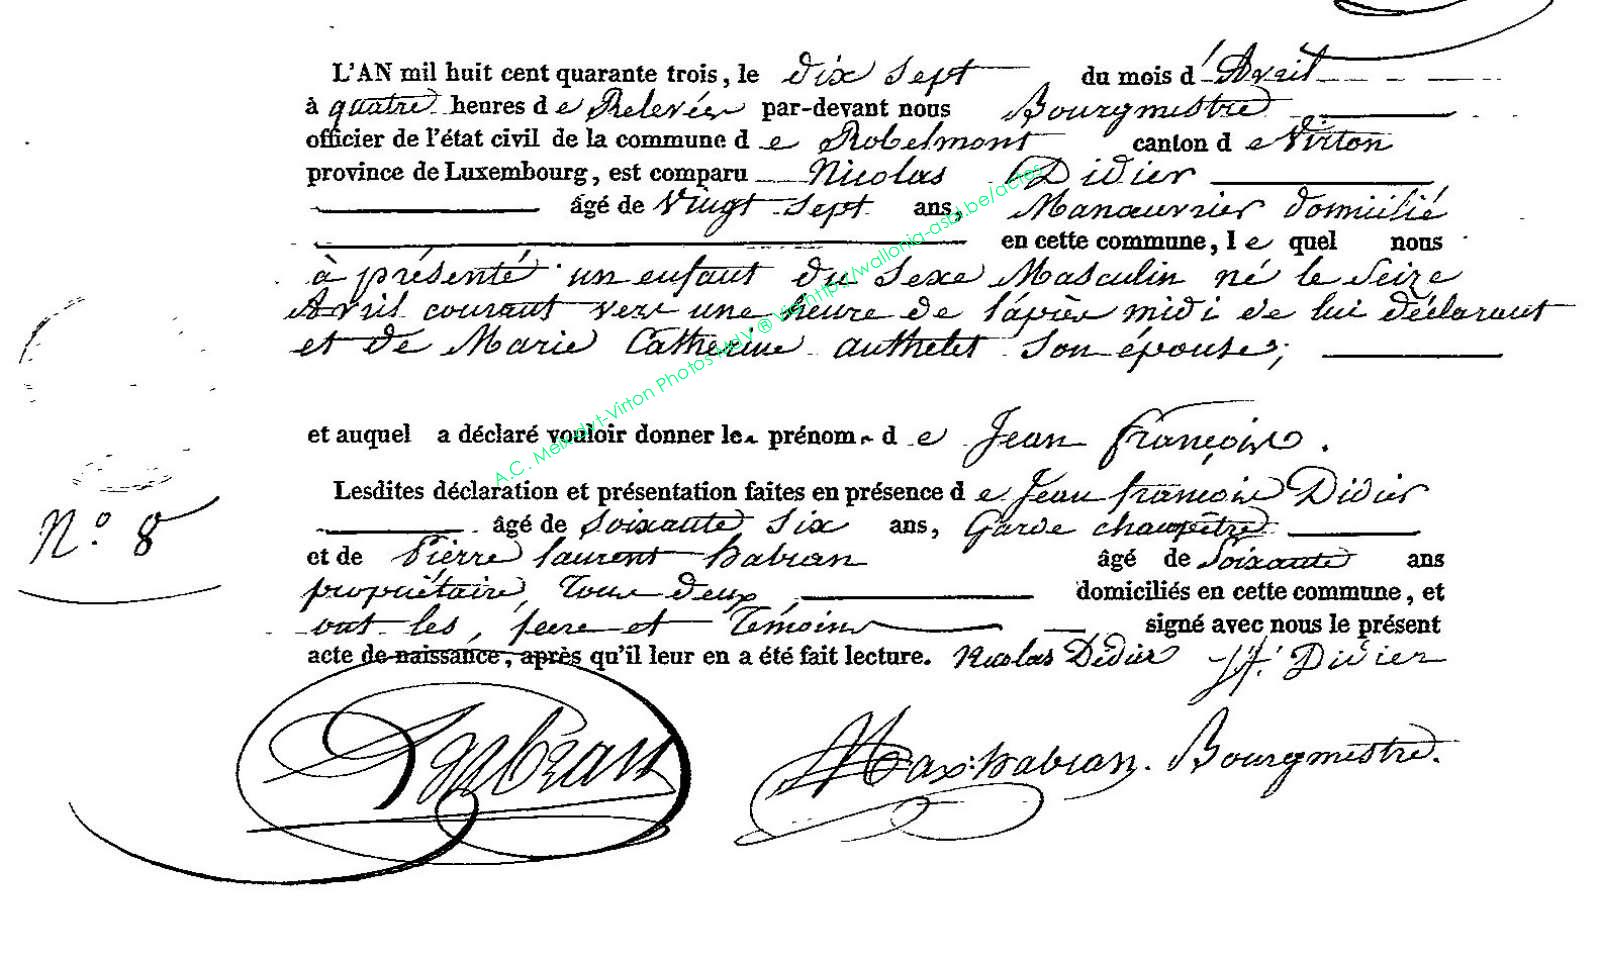 L'AN mil huit cent quarante trois, le dix sept du mois d'Avril
à quatre heures de Relevée par-devant nous Bourgmestre
officier de l'état civil de la commune de Robelmont canton de Virton
province de Luxembourg, est comparu Nicolas Didier
âgé de Vingt Sept ans, Manœuvrier domicilié
en cette commune, lequel nous
à présenté un enfant du Sexe Masculin né le Seize
Avril courant vers une heure de l'après midi de lui déclarant
et de Marie Catherine authelet Son épouse;
et auquel a déclaré vouloir donner les prénoms de Jean françois.
Lesdites déclaration et présentation faites en présence de Jean françois Didier
âgé de Soixante Six ans, Garde champêtre
et de Pierre laurent habran âgé de Soixante ans
N° 8
propriétaire, Tous deux domiciliés en cette commune, et
ont les, père et Témoins signé avec nous le présent
acte de naissance, après qu'il leur en a été fait lecture. Nicolas Didier J f. Didier
habran Max: habran. Bourgmestre.
A.C. Meix-dvt-Virton Photos MdV ® via http://wallonia-asbl.be/actes